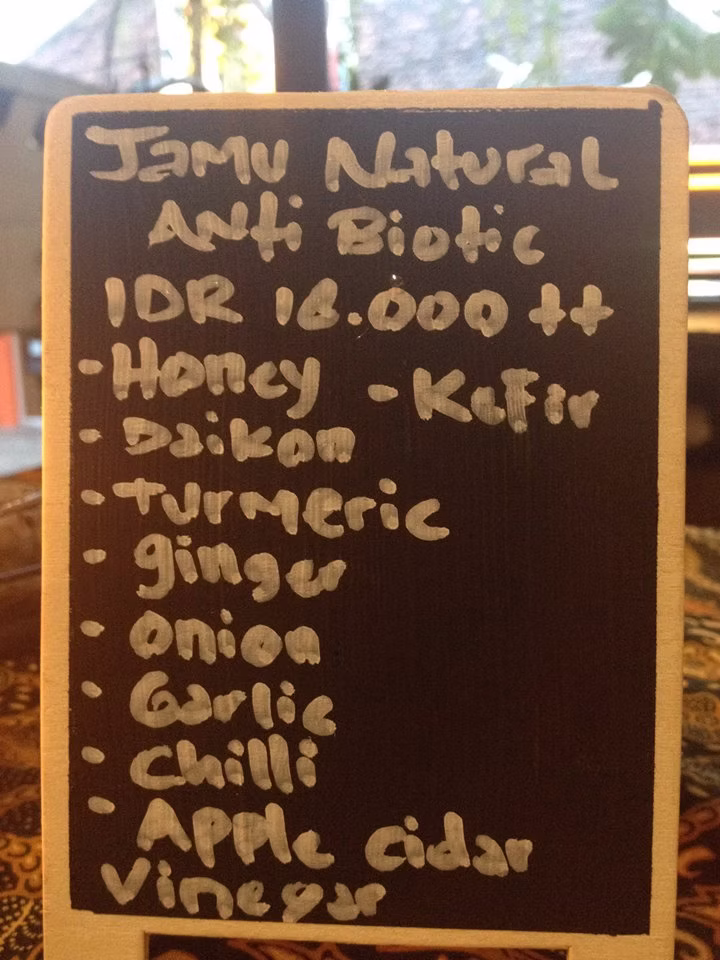 Jamu Natural
Anti Biotic
IDR 18.000 ++
- Honey - Kefir
- Daikon
- Turmeric
- ginger
- onion
- Garlic
- Chilli
- Apple cidar
Vinegar